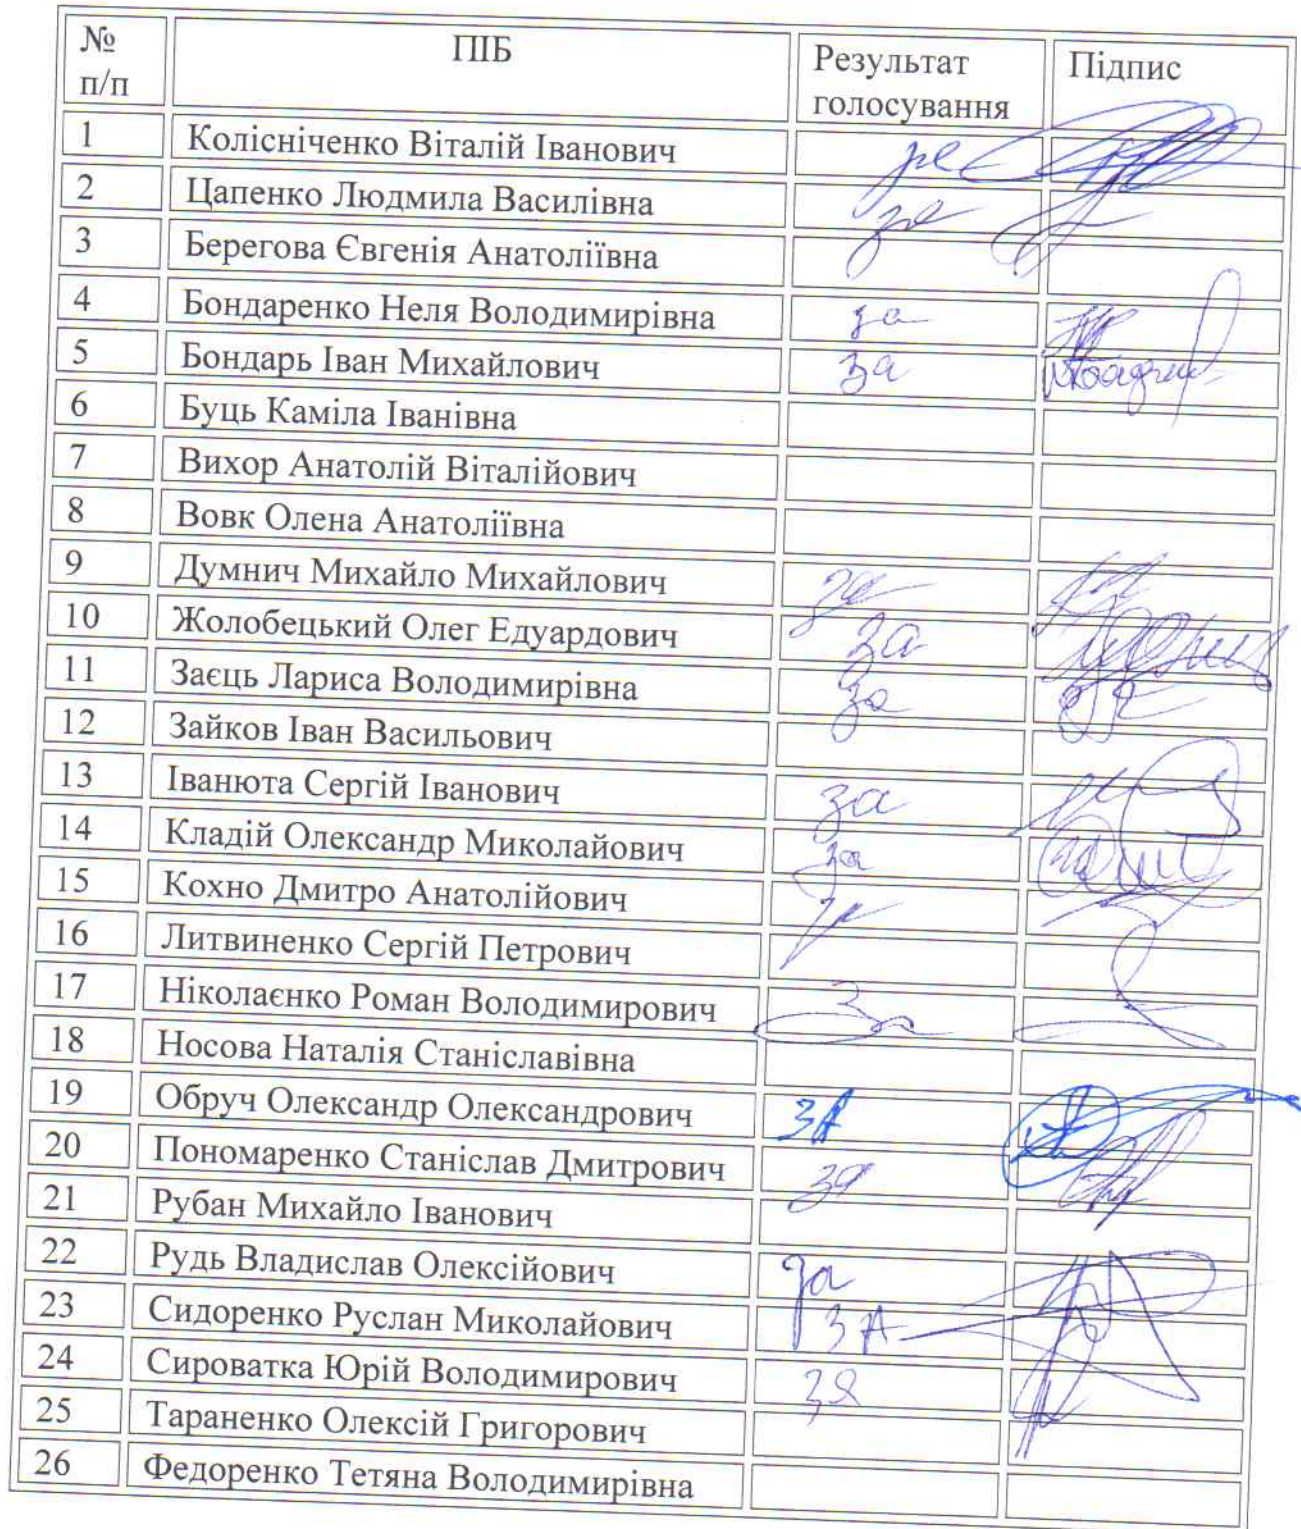 № п/п ПІБ Результат голосування Підпис
1 Колісніченко Віталій Іванович за
2 Цапенко Людмила Василівна за
3 Берегова Євгенія Анатоліївна
4 Бондаренко Неля Володимирівна за
5 Бондарь Іван Михайлович за
6 Буць Каміла Іванівна
7 Вихор Анатолій Віталійович
8 Вовк Олена Анатоліївна
9 Думнич Михайло Михайлович за
10 Жолобецький Олег Едуардович за
11 Заєць Лариса Володимирівна за
12 Зайков Іван Васильович
13 Іванюта Сергій Іванович за
14 Кладій Олександр Миколайович за
15 Кохно Дмитро Анатолійович за
16 Литвиненко Сергій Петрович
17 Ніколаєнко Роман Володимирович за
18 Носова Наталія Станіславівна
19 Обруч Олександр Олександрович ЗА
20 Пономаренко Станіслав Дмитрович за
21 Рубан Михайло Іванович
22 Рудь Владислав Олексійович за
23 Сидоренко Руслан Миколайович ЗА
24 Сироватка Юрій Володимирович за
25 Тараненко Олексій Григорович
26 Федоренко Тетяна Володимирівна